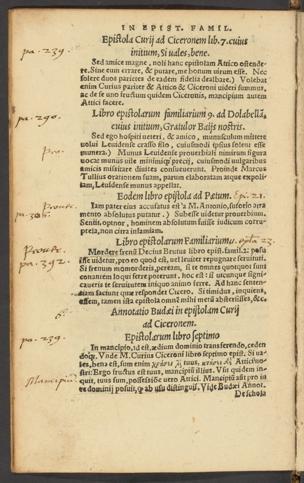 IN EPIST. FAMIL.
Epistola Curij ad Ciceronem lib. 7. cuius
initium, Si uales, bene.
pa. 239.
Sed amice magne, noli hanc epistolam Attico ostende
re. Sine eum errare, & putare, me bonum uirum esse. Nec
solere duos parietes de eadem fidelia dealbare.) Volebat
enim Curius pariter & Attico & Ciceroni uideri summus,
ac de se uno fructum quidem Ciceronis, mancipium autem
Attici facere.
pa. 290.
Libro epistolarum familiarium 9. ad Dolabellā,
cuius initium, Gratulor Baijs nostris.
Sed ego hospiti ueteri, & amico, munusculum mittere
uolui Leuidense crasso filo, cuiusmodi ipsius solent esse
munera.) Munus Leuidense prouerbiali nimirum figura
uocat munus uile minimiq; precij, cuiusmodi uulgaribus
amicis missitare consueuerunt. Proinde Marcus
Tullius orationem suam, parum elaboratam atque expoli
tam, Leuidense munus appellat.
Eodem libro epistola ad Pætum.
pa. 306.
Iam pater eius accusatus est a M. Antonio, sutorio atra
mento absolutus putatur.) Subesse uidetur prouerbium.
Sentit opinor, hominem absolutum fuisse iudicum corru
ptela, non citra infamiam.
Libro epistolarum Familiarium
pa. 392.
Mordere frenū Decius Brutus libro epist. familia. posu
isse uidetur, pro eo quod est, uel leuiter repugnare seruituti.
Si frenum momorderis, peream, si te omnes quotquot sunt
conantem loqui ferre poterunt, hoc est: si utcunque signifi
caueris te seruitutem iniquo animo ferre. Ad hanc senten
tiam facturi quæ respondet Cicero. Si timidus, inquiens,
essem, tamen ista epistola omnē mihi metū abstersisses, &c.
Annotatio Budæi in epistolam Curij
ad Ciceronem.
Epistolarum libro septimo
pa. 239.
In mancipio, id est, ædium dominio transferendo, ceden
doq;. Vnde M. Curius Ciceroni libro septimo epist. Si ua
les, bena est, sum enim
nostri: Ergo fructus est tuus, mancipiū illius. Vsu quidem in-
quit, tuus sum, possessiōe uero Attici. Mancipiū ast pro iu
re dominij posuit, q̄ ab usu distinguit. Vide Budæi Annot.
De schola